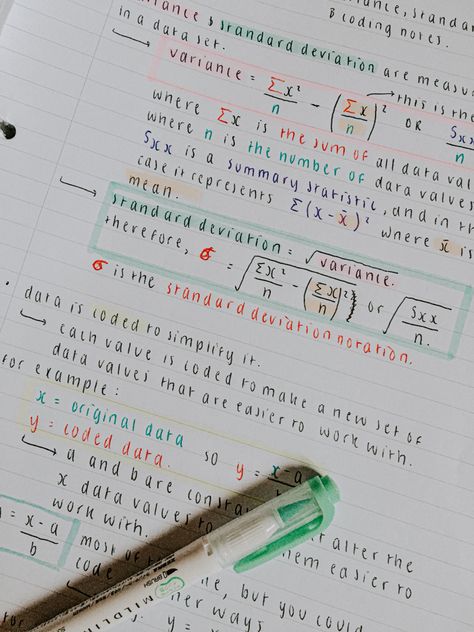 variance, standar
& coding notes.
variance & standard deviation are measu
in a data set.
variance = Σx²/n - (Σx/n)² OR Sxx/n
this is the
where Σx is the sum of all data val
where n is the number of data values
Sxx is a summary statistic, and in th
case it represents Σ(x-x̄)² where x̄ is
mean.
standard deviation = √variance.
therefore, σ = √(Σx²/n - (Σx/n)²) or √(Sxx/n).
σ is the standard deviation notation.
• data is coded to simplify it.
each value is coded to make a new set of
data values that are easier to work with.
for example:
x = original data
y = coded data.
so y = x-a/b
a and b are consta
alter the
x data values to
hem easier to
work with.
= x-a/b
most of
code
e, but you could
her ways
for
y =
BRUSH
MILDLIN